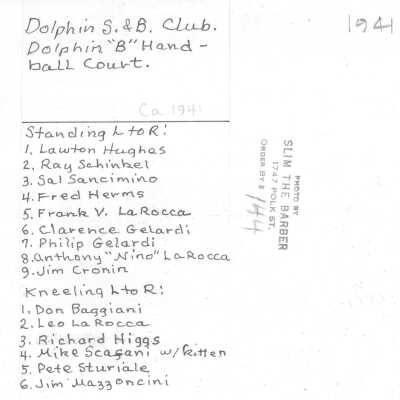 Dolphin S. & B. Club.
Dolphin "B" Hand-
ball Court.
1941
Ca 1941
Standing L to R:
1. Lawton Hughes
2. Ray Schinkel
3. Sal Sancimino
4. Fred Herms
5. Frank V. LaRocca
6. Clarence Gelardi
7. Philip Gelardi
8. Anthony "Nino" LaRocca
9. Jim Cronin
Kneeling L to R:
1. Don Baggiani
2. Leo La Rocca
3. Richard Higgs
4. Mike Scafani w/kitten
5. Pete Sturiale
6. Jim Mazzoncini
PHOTO BY
SLIM THE BARBER
1747 POLK ST.
ORDER BY #
144